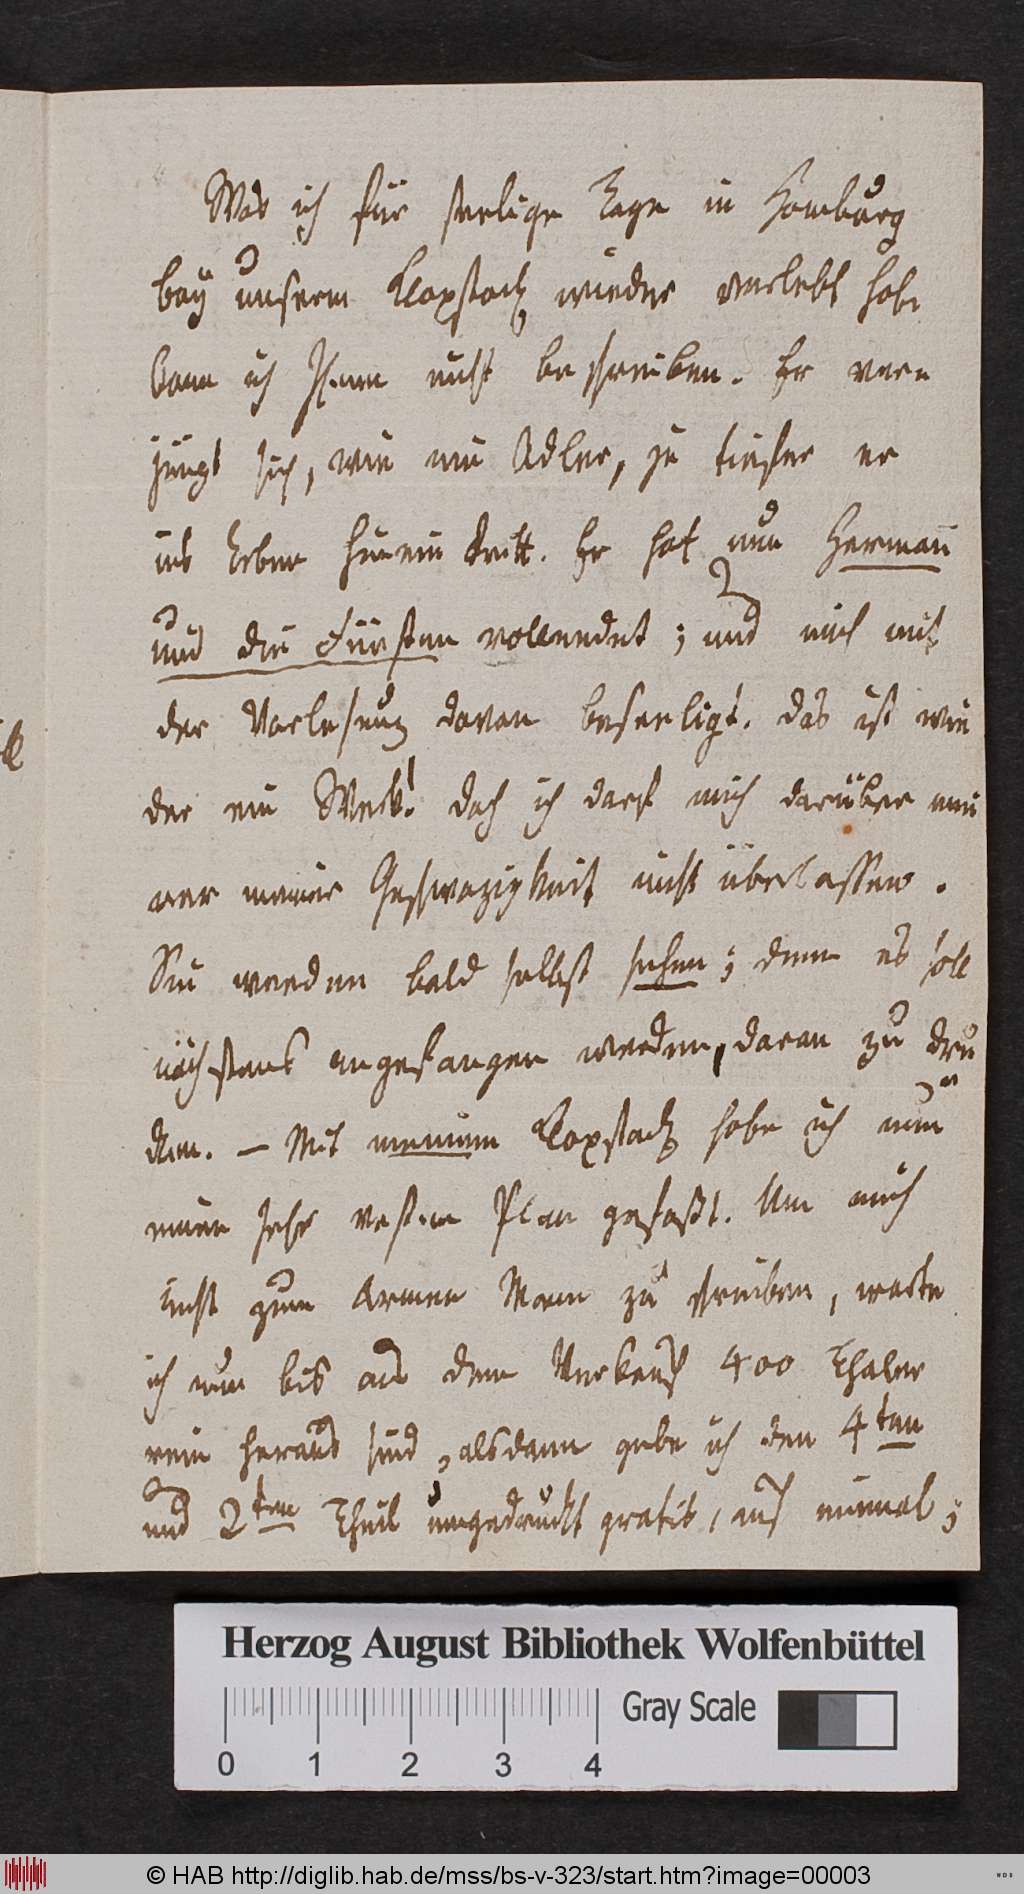 Was ich für seelige Tage in Hamburg
bey unserm Klopstock wieder verlebt habe
kann ich Ihnen nicht beschreiben. Er ver-
jüngt sich, wie ein Adler, je tiefer er
ins Leben hinein tritt. Er hat nun Herman̄
und die Fürsten vollendet; und mich mit
der Vorlesung davon beseeligt. das ist wie
der ein Werk! doch ich darf mich darüber nun
meiner Geschwäzigkeit nicht überlassen.
Sie werden bald selbst sehen; denn es soll
nächstens angefangen werden, daran zu dru
cken. – Mit meinem Klopstock habe ich nun
einen sehr vesten Plan gefaßt. Um mich
nicht zum armen Mann zu schreiben, warte
ich nun bis aus dem Verkauf 400 Thaler
rein heraus sind, alsdann gebe ich den 4ten
und 2ten Theil umgedruckt gratis, auf einmal;
Herzog August Bibliothek Wolfenbüttel
0 1 2 3 4 Gray Scale
© HAB http://diglib.hab.de/mss/bs-v-323/start.htm?image=00003